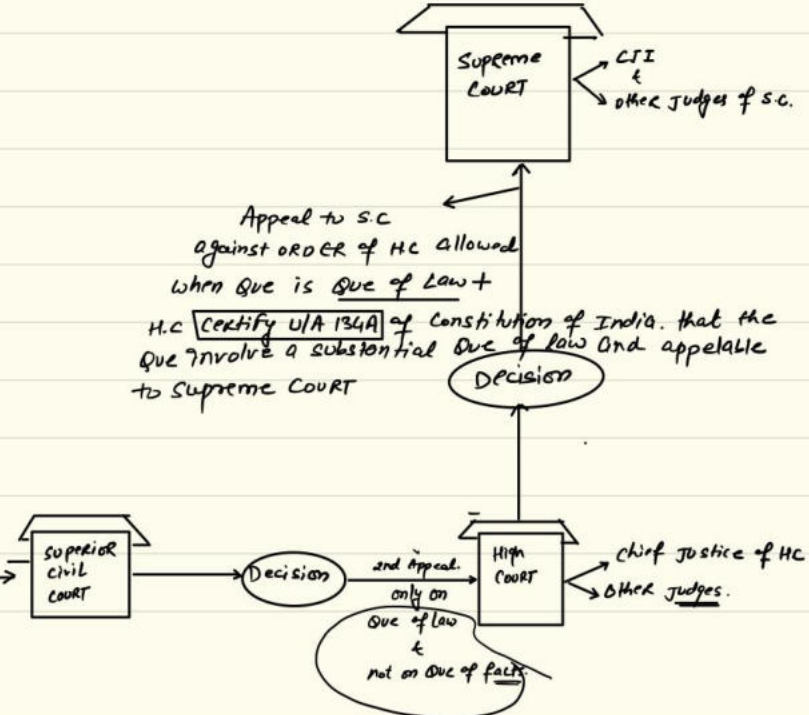 Supreme
COURT
CJI
&
other Judges of S.C.
Appeal to S.C
against ORDER of HC allowed
when Que is Que of Law +
H.C Certify U/A 134A of Constitution of India. that the
Que involve a substantial Que of law and appelable
to Supreme COURT
Decision
Superior
Civil
COURT
Decision
2nd Appeal.
only on
Que of Law
&
not on Que of facts.
High
COURT
Chief Justice of HC
Other Judges.